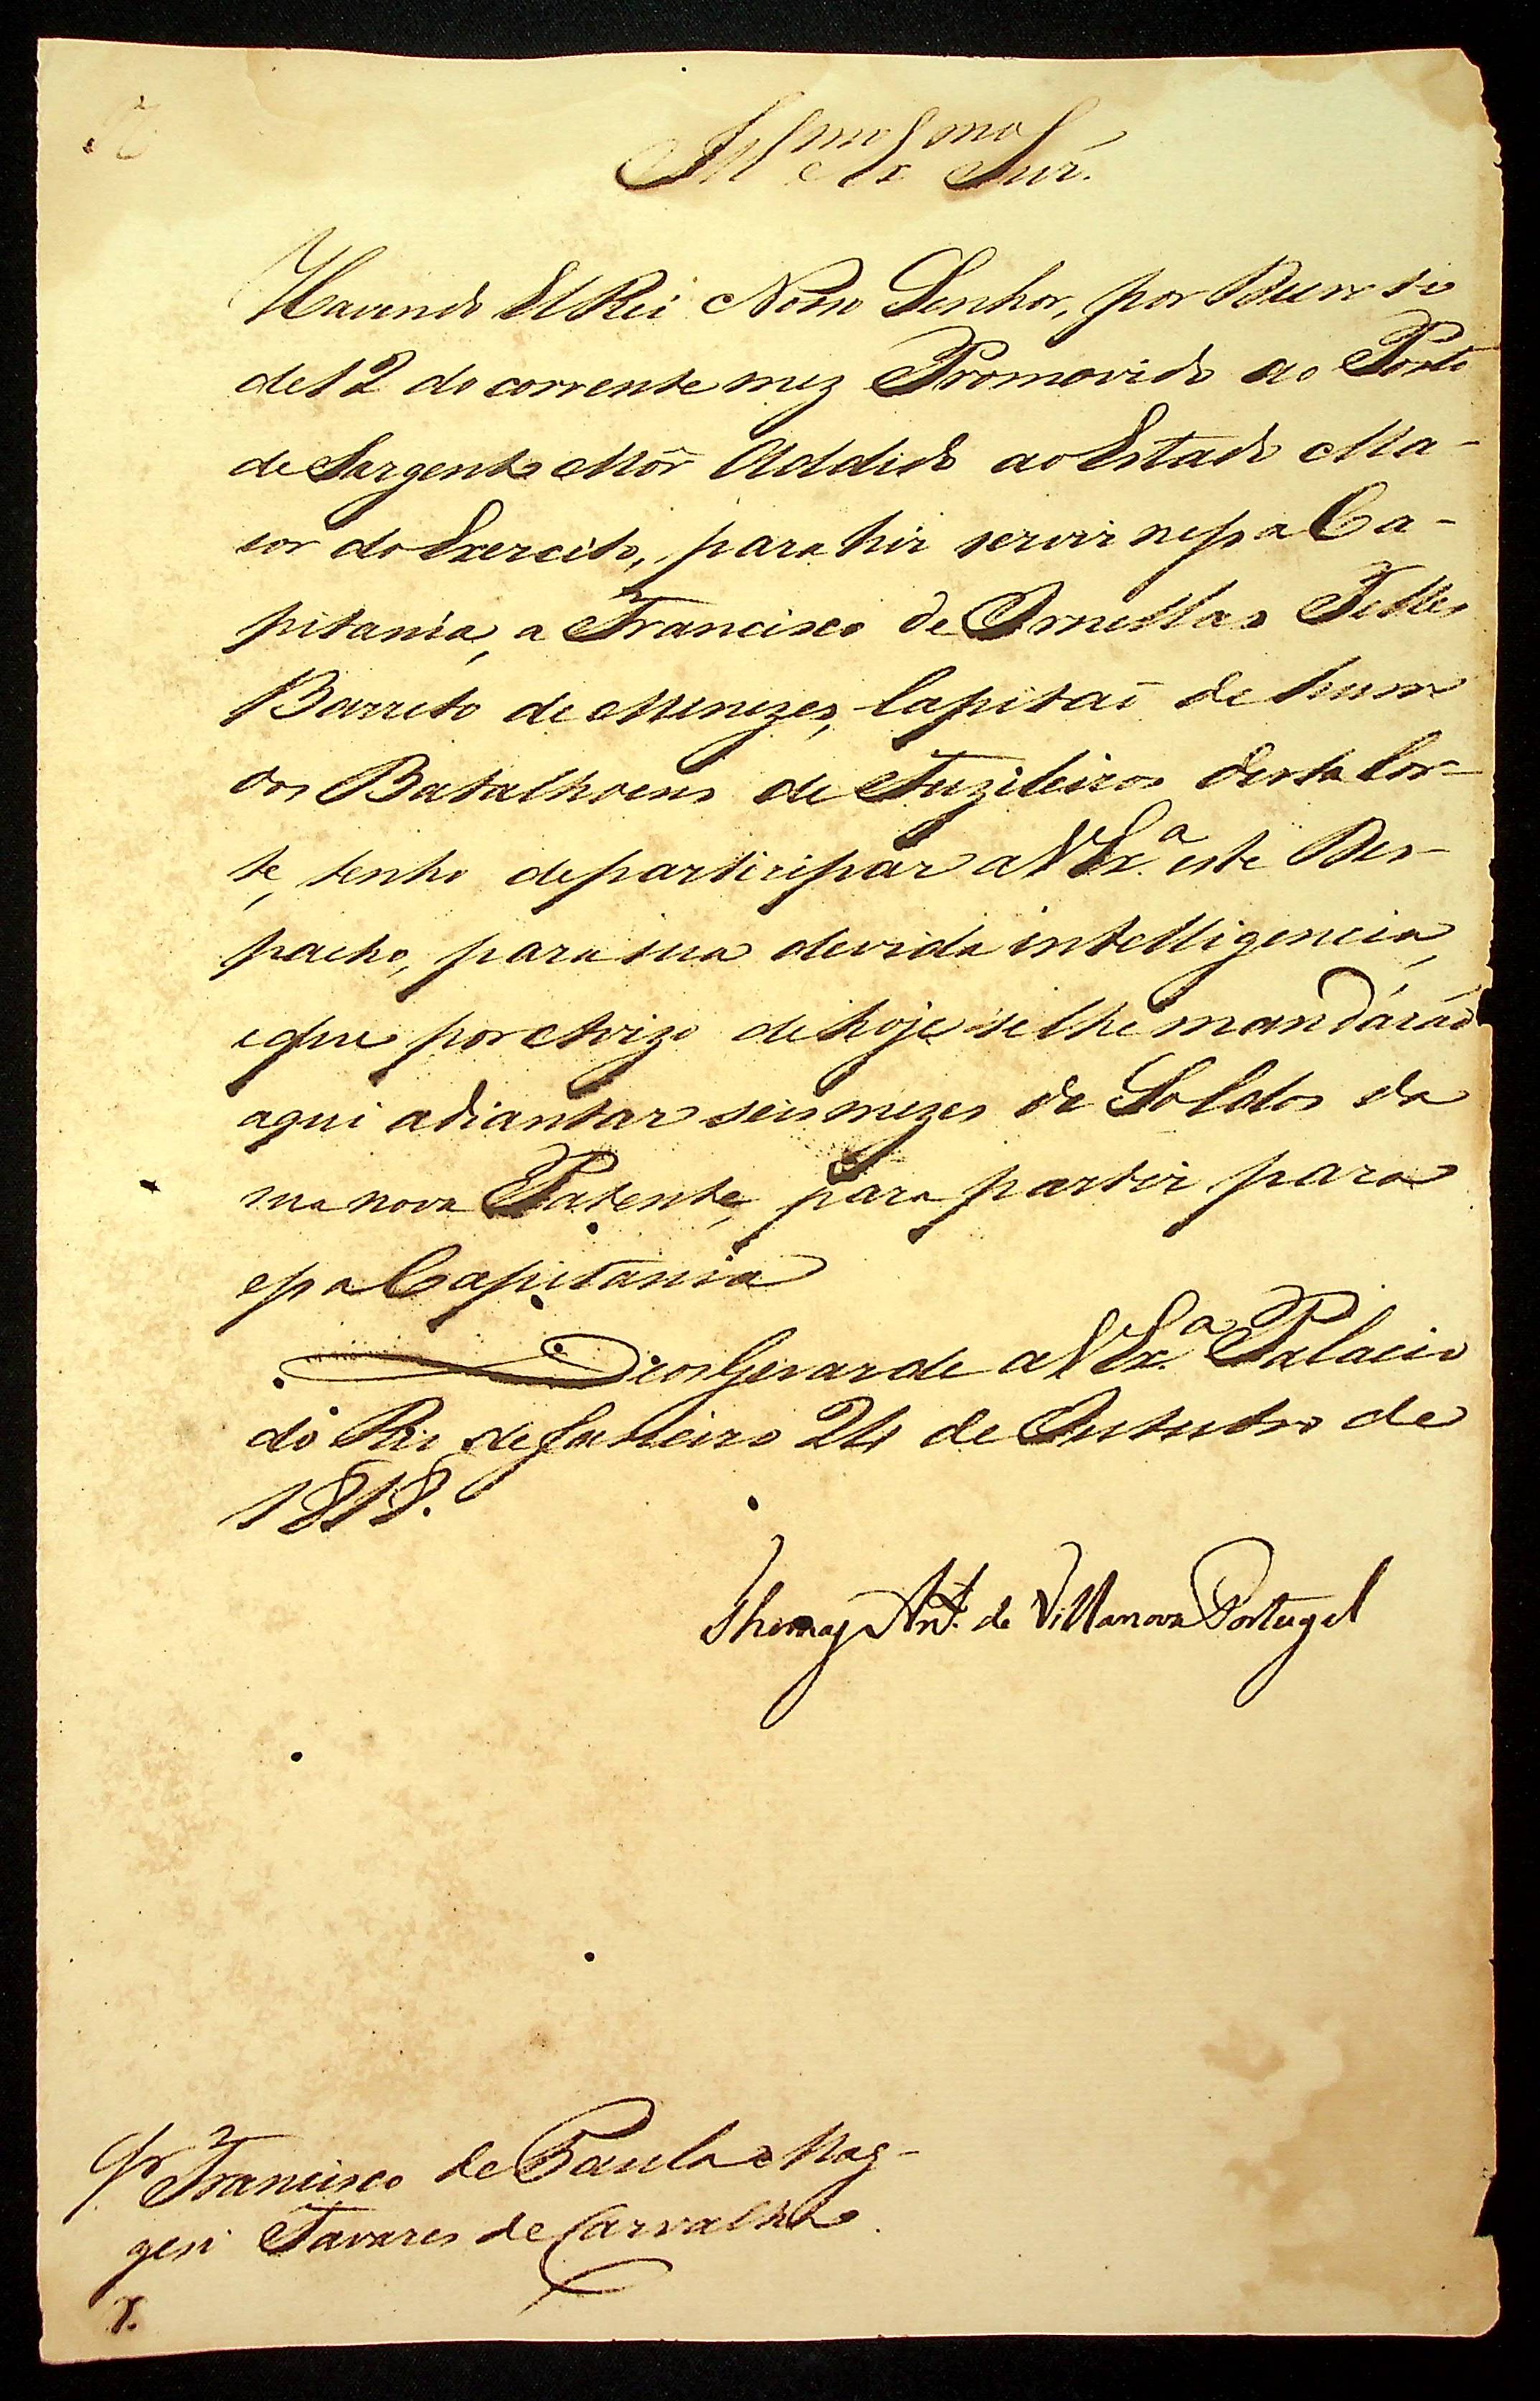 Ill.mo Ex.mo Snr.
Havendo ElRei Nosso Senhor, por Decreto
de 12 do corrente mez Promovido ao Posto
de Sargento Mór Addido ao Estado Ma-
ior do Exercito, para hir servir nessa Ca-
pitania, a Francisco de Ornellas Telles
Barreto de Menezes, Capitaõ de hum
dos Batalhoens de Fuzileiros desta Cor-
te, tenho de participar a V Ex.a este Des-
pacho, para sua devida intelligencia,
e que por Avizo de hoje se lhe mandáraõ
aqui adiantar seis mezes de Soldos da
sua nova Patente, para partir para
essa Capitania
Deos Guarde a V Ex.a Palacio
do Rio de Janeiro 24 de Outubro de
1818.
Thomaz Ant.º de Villanova Portugal
Sr Francisco de Paula Mag-
gesi Tavares de Carvalho.